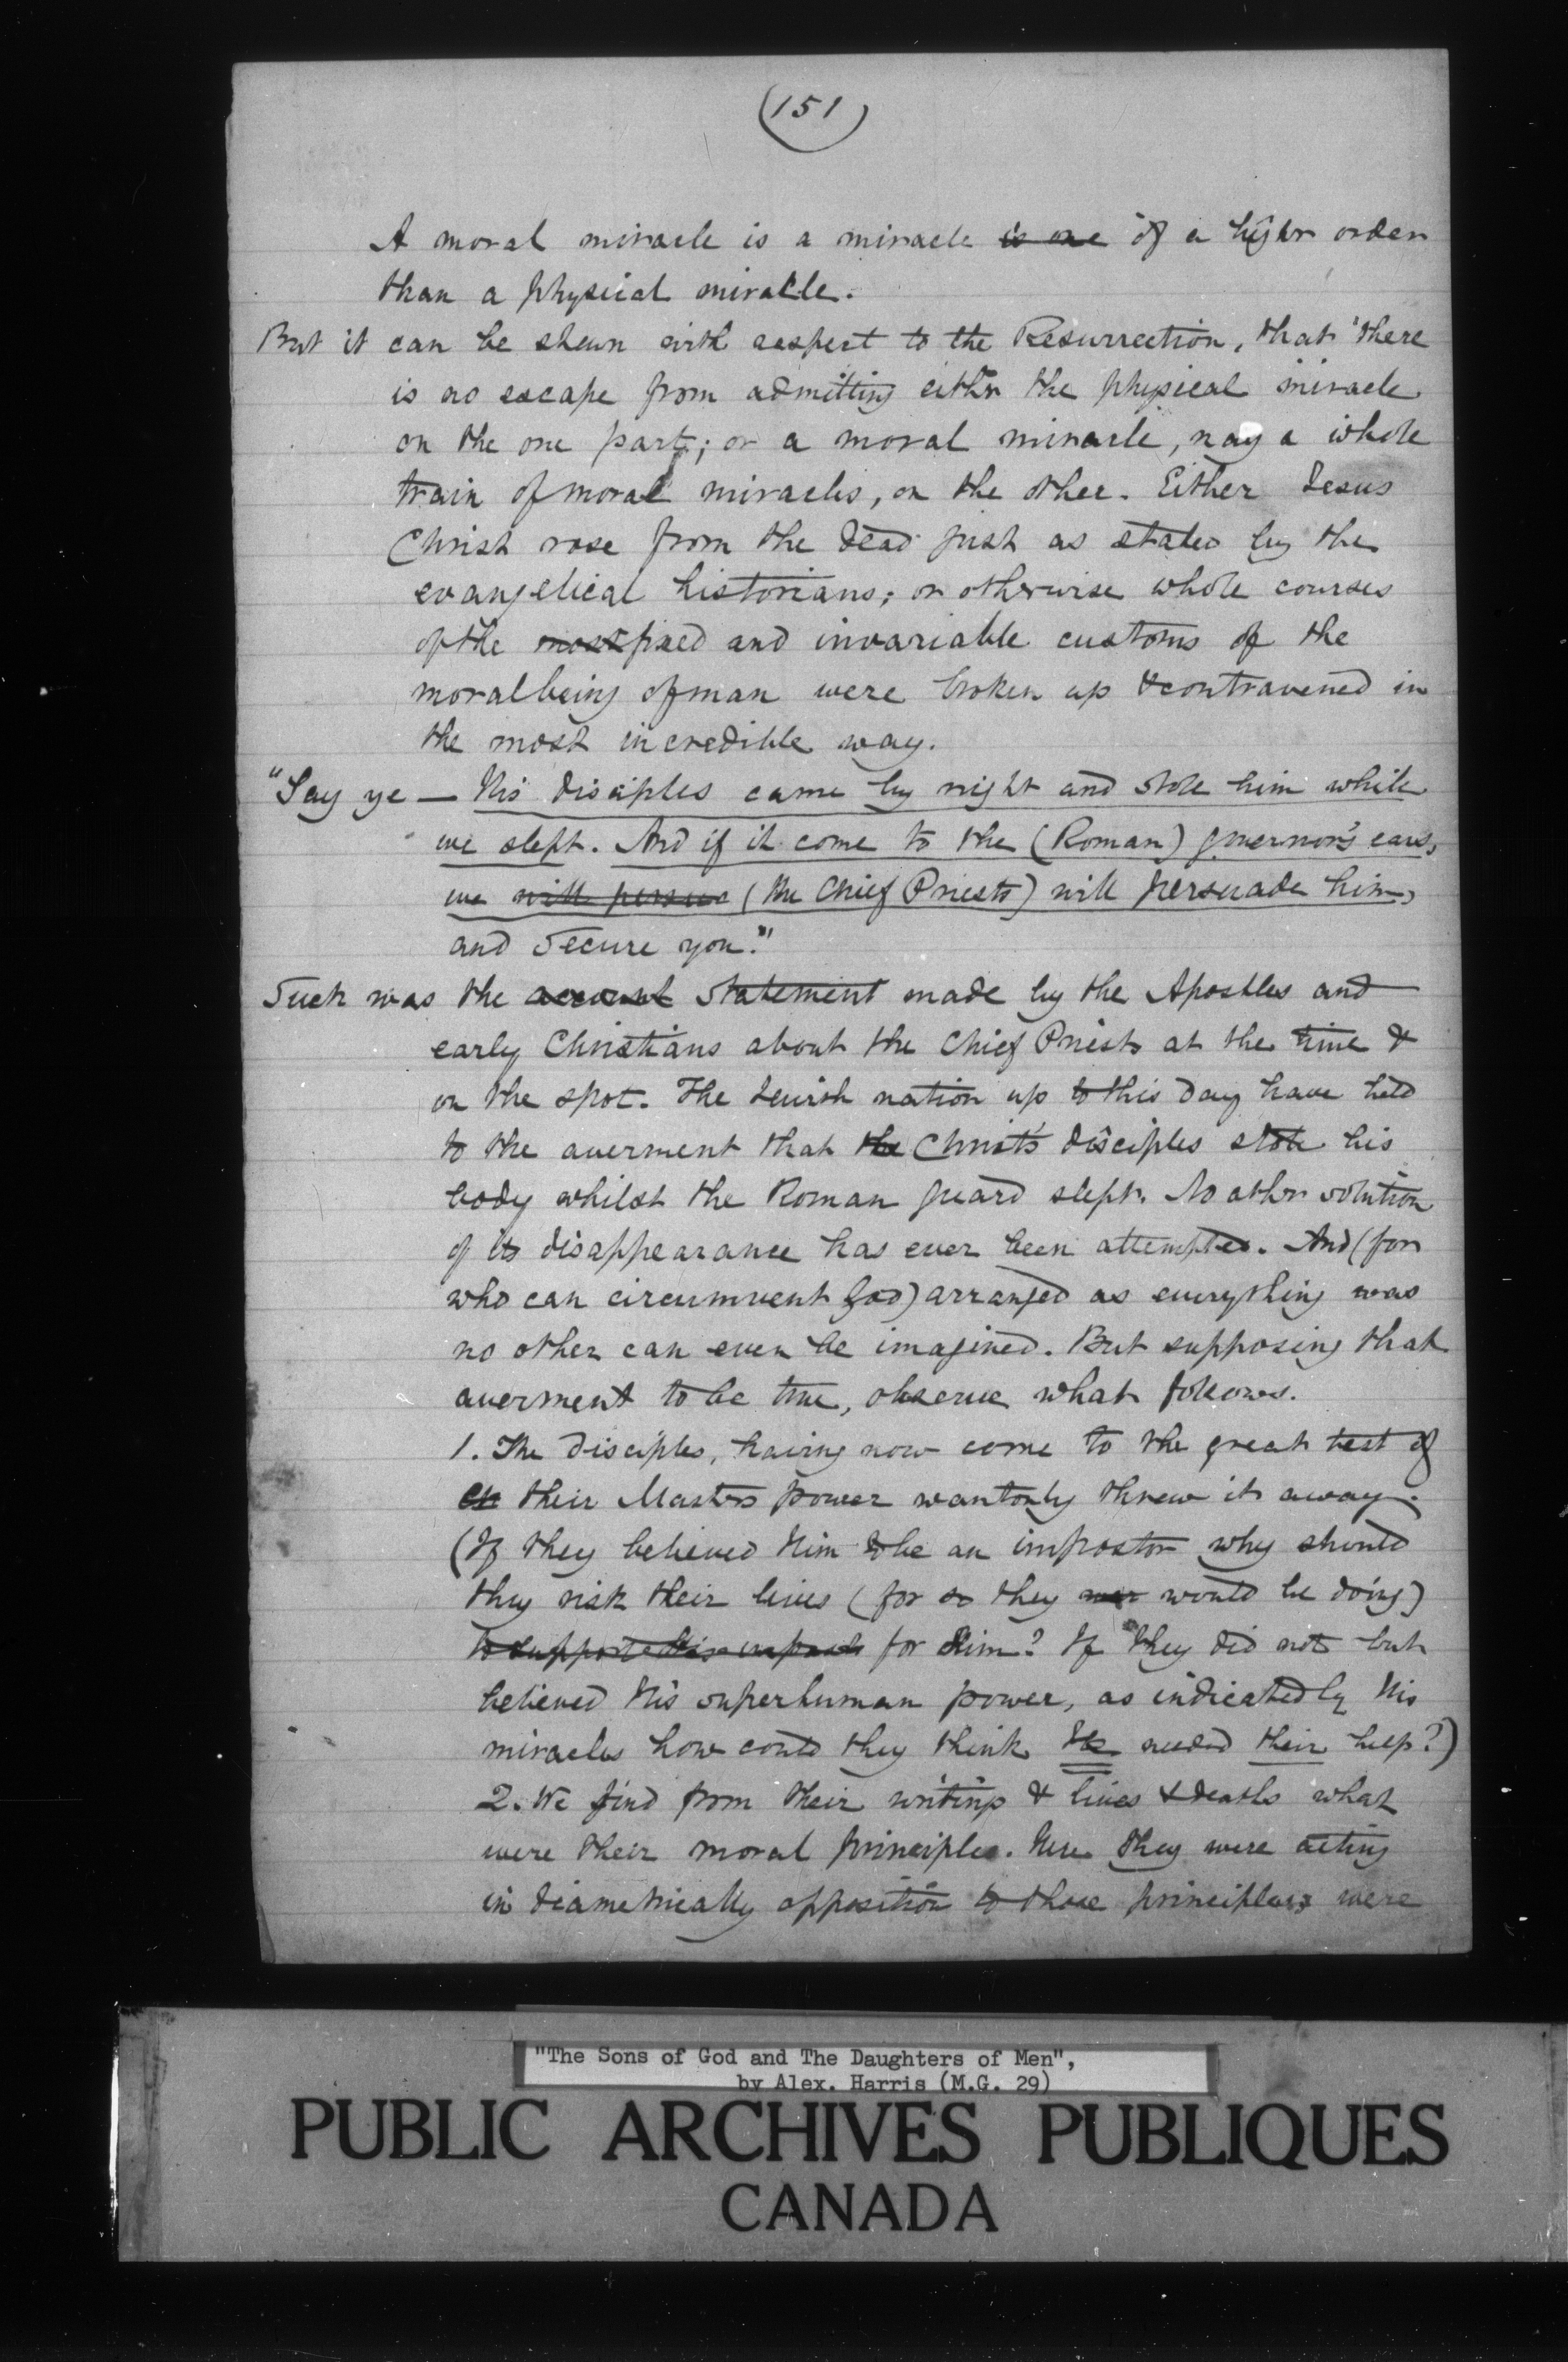 (151)
A moral miracle is a miracle is one of a higher order
than a physical miracle.
But it can be shewn with respect to the Resurrection, that there
is no escape from admitting either the physical miracle
on the one part; or a moral miracle, nay a whole
train of moral miracles, on the other. Either Jesus
Christ rose from the dead just as stated by the
evangelical historians; or otherwise whole courses
of the most fixed and invariable customs of the
moral being of man were broken up & contravened in
the most incredible way.
"Say ye — His disciples came by night and stole him while
we slept. And if it come to the (Roman) governor's ears,
we will persua (the Chief Priests) will persuade him,
and secure you."
Such was the account statement made by the Apostles and
early Christians about the Chief Priests at the time &
on the spot. The Jewish nation up to this day have held
to the averment that the Christ's disciples stole his
body whilst the Roman guard slept. No other solution
of its disappearance has ever been attempted. And (for
who can circumvent God) arranged as everything was
no other can even be imagined. But supposing that
averment to be true, observe what follows.
1. The disciples, having now come to the great test of
their Masters power wantonly threw it away.
(If they believed Him to be an impostor why should
they risk their lives (for so they would be doing)
to support his for Him? If they did not but
believed His superhuman power, as indicated by His
miracles how could they think He needed their help?)
2. We find from their writings & lives & deaths what
were their moral principles. Here they were acting
in diametrically opposition to those principles were
"The Sons of God and The Daughters of Men",
by Alex. Harris (M.G. 29)
PUBLIC ARCHIVES PUBLIQUES
CANADA